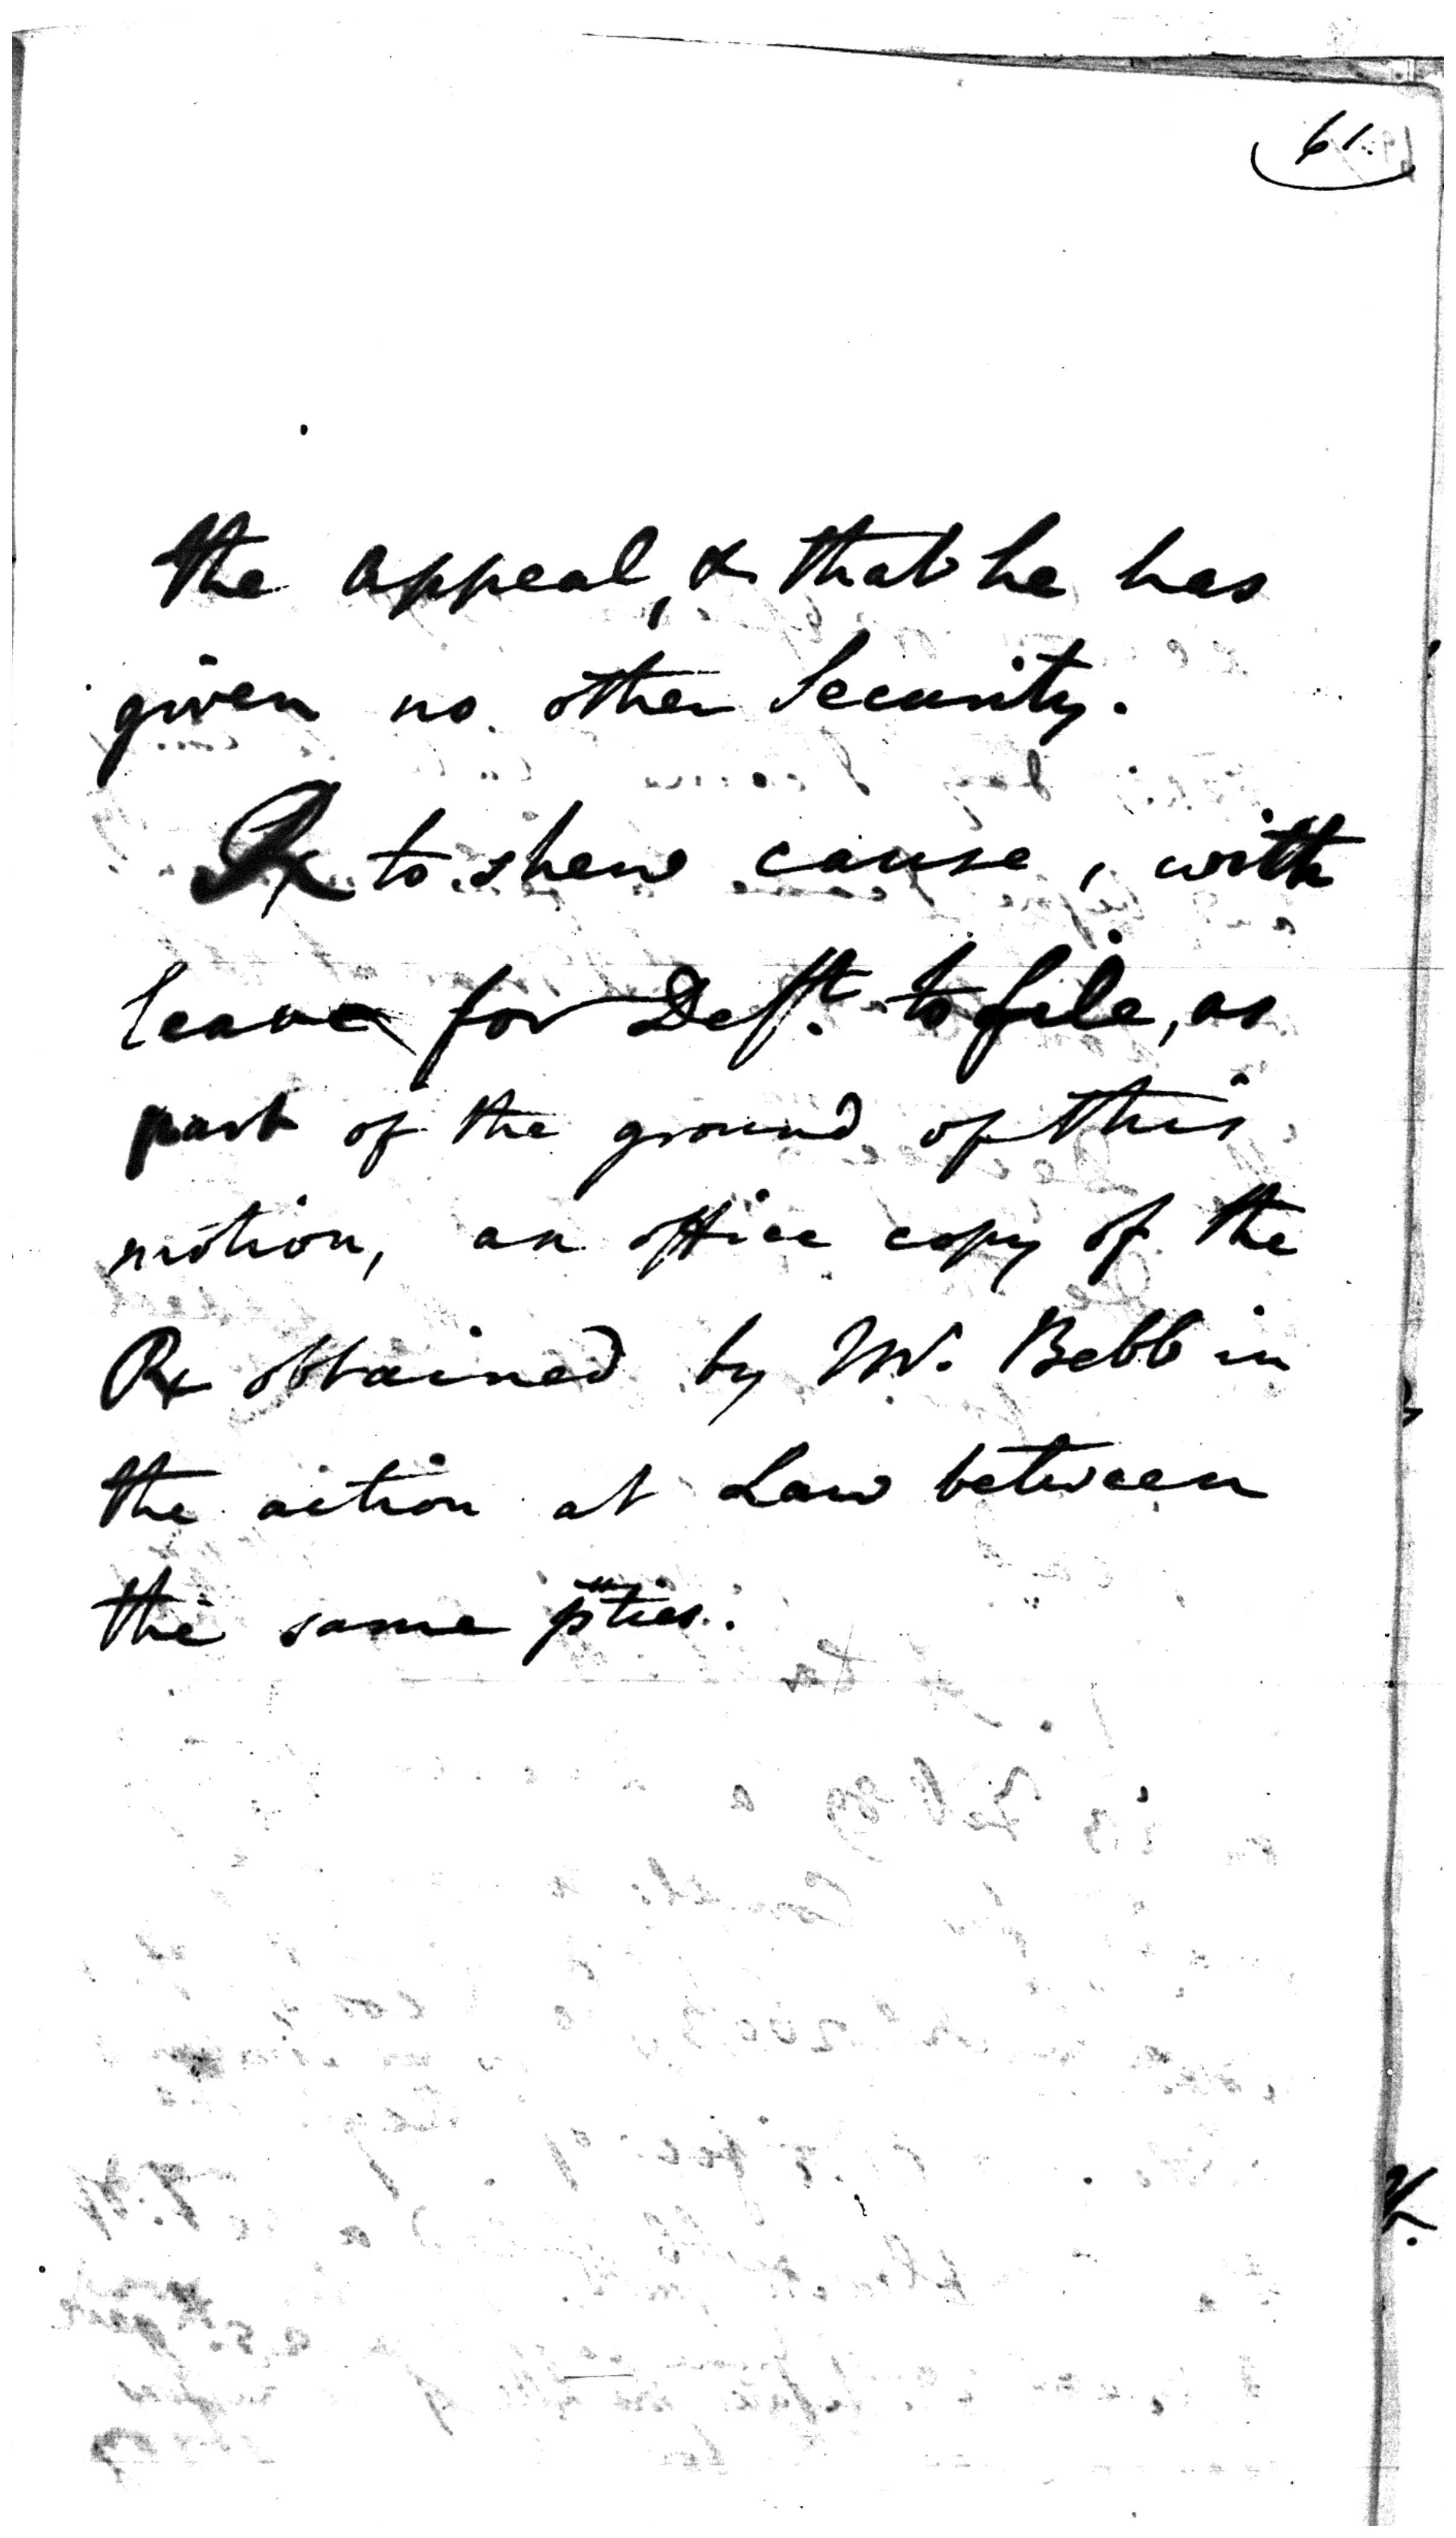 61
the appeal, & that he has
given no other Security.
Rx to shew cause, with
leave for Deft. to file, as
part of the ground of this
motion, an office copy of the
Rx obtained by Mr. Bebb in
the action at Law between
the same pties.